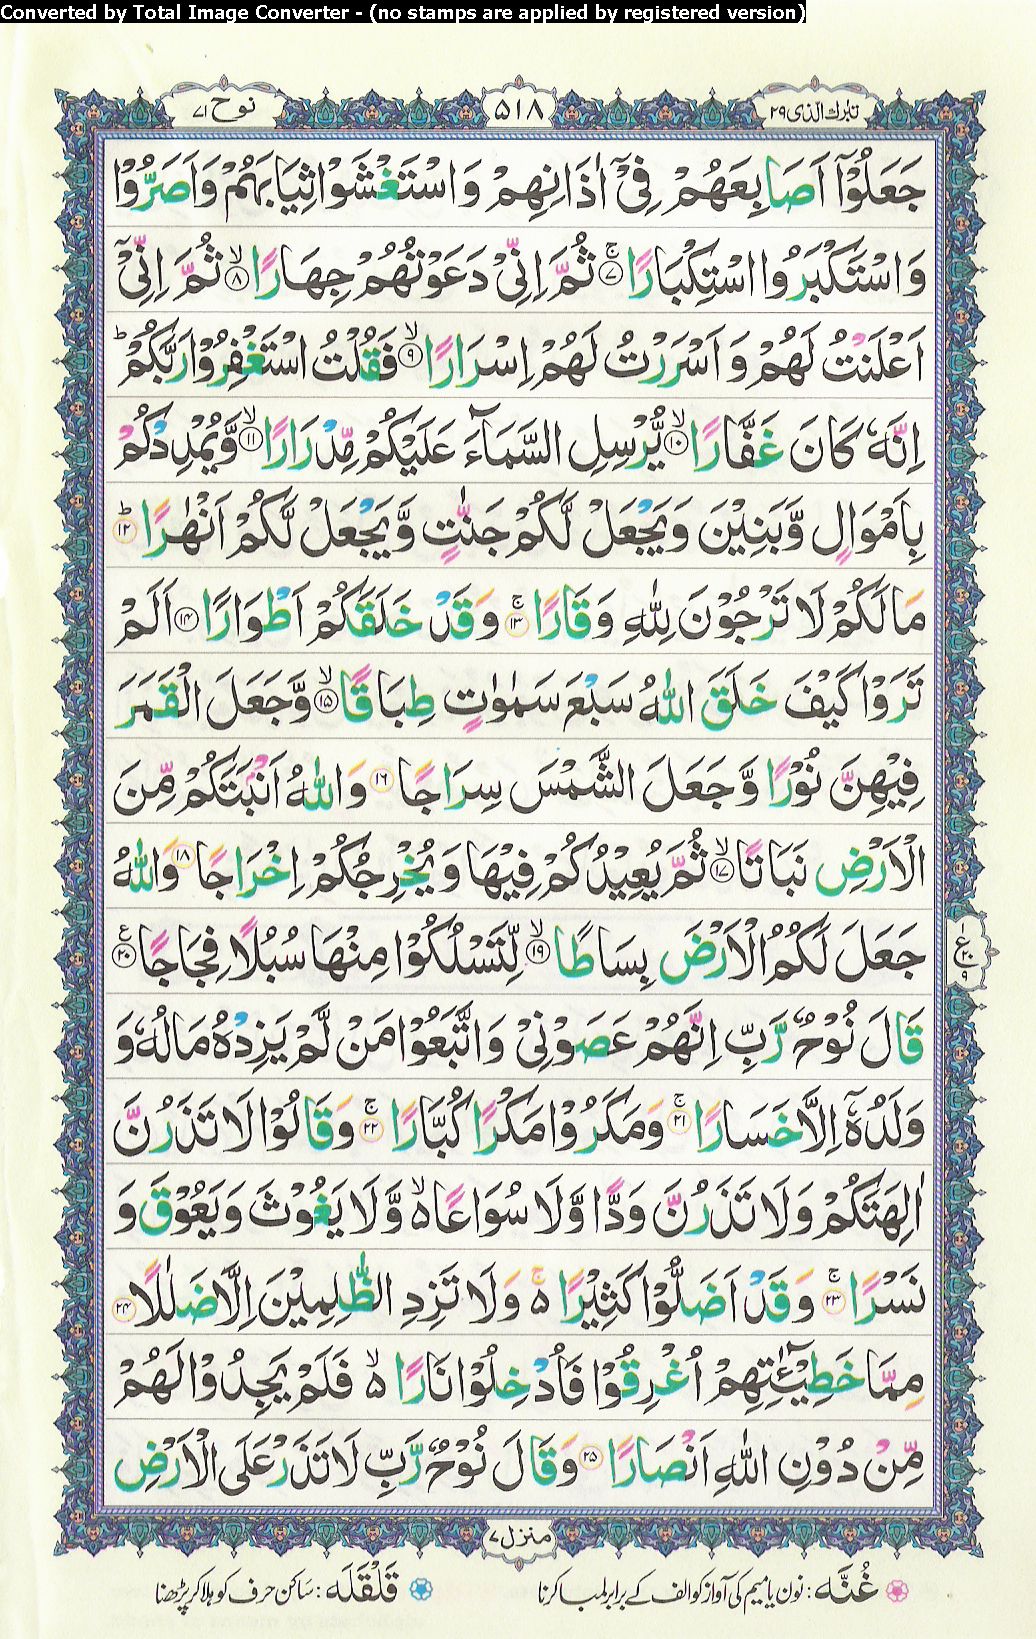 Converted by Total Image Converter - (no stamps are applied by registered version)
تبٰرك الذی ۲۹ ۵۱۸ نوح ۷۱
جَعَلُوْۤا اَصَابِعَهُمْ فِیْۤ اٰذَانِهِمْ وَاسْتَغْشَوْا ثِیَابَهُمْ وَاَصَرُّوْا
وَاسْتَكْبَرُوا اسْتِكْبَارًا ۚ۷ ثُمَّ اِنِّیْ دَعَوْتُهُمْ جِهَارًا ۙ۸ ثُمَّ اِنِّیْۤ
اَعْلَنْتُ لَهُمْ وَاَسْرَرْتُ لَهُمْ اِسْرَارًا ۙ۹ فَقُلْتُ اسْتَغْفِرُوْا رَبَّكُمْ ؕ
اِنَّهٗ كَانَ غَفَّارًا ۙ۱۰ یُّرْسِلِ السَّمَآءَ عَلَیْكُمْ مِّدْرَارًا ۙ۱۱ وَّیُمْدِدْكُمْ
بِاَمْوَالٍ وَّبَنِیْنَ وَیَجْعَلْ لَّكُمْ جَنّٰتٍ وَّیَجْعَلْ لَّكُمْ اَنْهٰرًا ؕ۱۲
مَا لَكُمْ لَا تَرْجُوْنَ لِلّٰهِ وَقَارًا ۚ۱۳ وَقَدْ خَلَقَكُمْ اَطْوَارًا ۱۴ اَلَمْ
تَرَوْا كَیْفَ خَلَقَ اللّٰهُ سَبْعَ سَمٰوٰتٍ طِبَاقًا ۙ۱۵ وَّجَعَلَ الْقَمَرَ
فِیْهِنَّ نُوْرًا وَّجَعَلَ الشَّمْسَ سِرَاجًا ۱۶ وَاللّٰهُ اَنْۢبَتَكُمْ مِّنَ
الْاَرْضِ نَبَاتًا ۙ۱۷ ثُمَّ یُعِیْدُكُمْ فِیْهَا وَیُخْرِجُكُمْ اِخْرَاجًا ۱۸ وَاللّٰهُ
جَعَلَ لَكُمُ الْاَرْضَ بِسَاطًا ۙ۱۹ لِّتَسْلُكُوْا مِنْهَا سُبُلًا فِجَاجًا ۲۰ ع
۱ ع ۲۰ ۹
قَالَ نُوْحٌ رَّبِّ اِنَّهُمْ عَصَوْنِیْ وَاتَّبَعُوْا مَنْ لَّمْ یَزِدْهُ مَالُهٗ وَ
وَلَدُهٗۤ اِلَّا خَسَارًا ۚ۲۱ وَمَكَرُوْا مَكْرًا كُبَّارًا ۚ۲۲ وَقَالُوْا لَا تَذَرُنَّ
اٰلِهَتَكُمْ وَلَا تَذَرُنَّ وَدًّا وَّلَا سُوَاعًا ۙ۵ وَّلَا یَغُوْثَ وَیَعُوْقَ وَ
نَسْرًا ۚ۲۳ وَقَدْ اَضَلُّوْا كَثِیْرًا ۚ۵ وَلَا تَزِدِ الظّٰلِمِیْنَ اِلَّا ضَلٰلًا ۲۴
مِمَّا خَطِیْٓـٰٔتِهِمْ اُغْرِقُوْا فَاُدْخِلُوْا نَارًا ۙ۵ فَلَمْ یَجِدُوْا لَهُمْ
مِّنْ دُوْنِ اللّٰهِ اَنْصَارًا ۲۵ وَقَالَ نُوْحٌ رَّبِّ لَا تَذَرْ عَلَی الْاَرْضِ
منزل ۷
غُنَّه : نون یا میم کی آواز کو الف کے برابر لمبا کرنا قَلْقَلَه : ساکن حرف کو ہلا کر پڑھنا